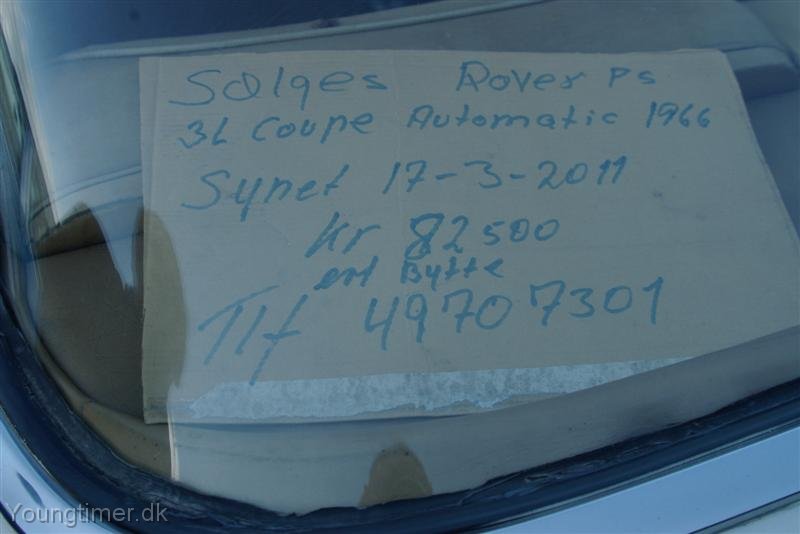 Salges Rover P5
3L Coupe Automatic 1966
Synet 17-3-2011
kr 82500
ent Bytte
Tlf 49707301
Youngtimer.dk